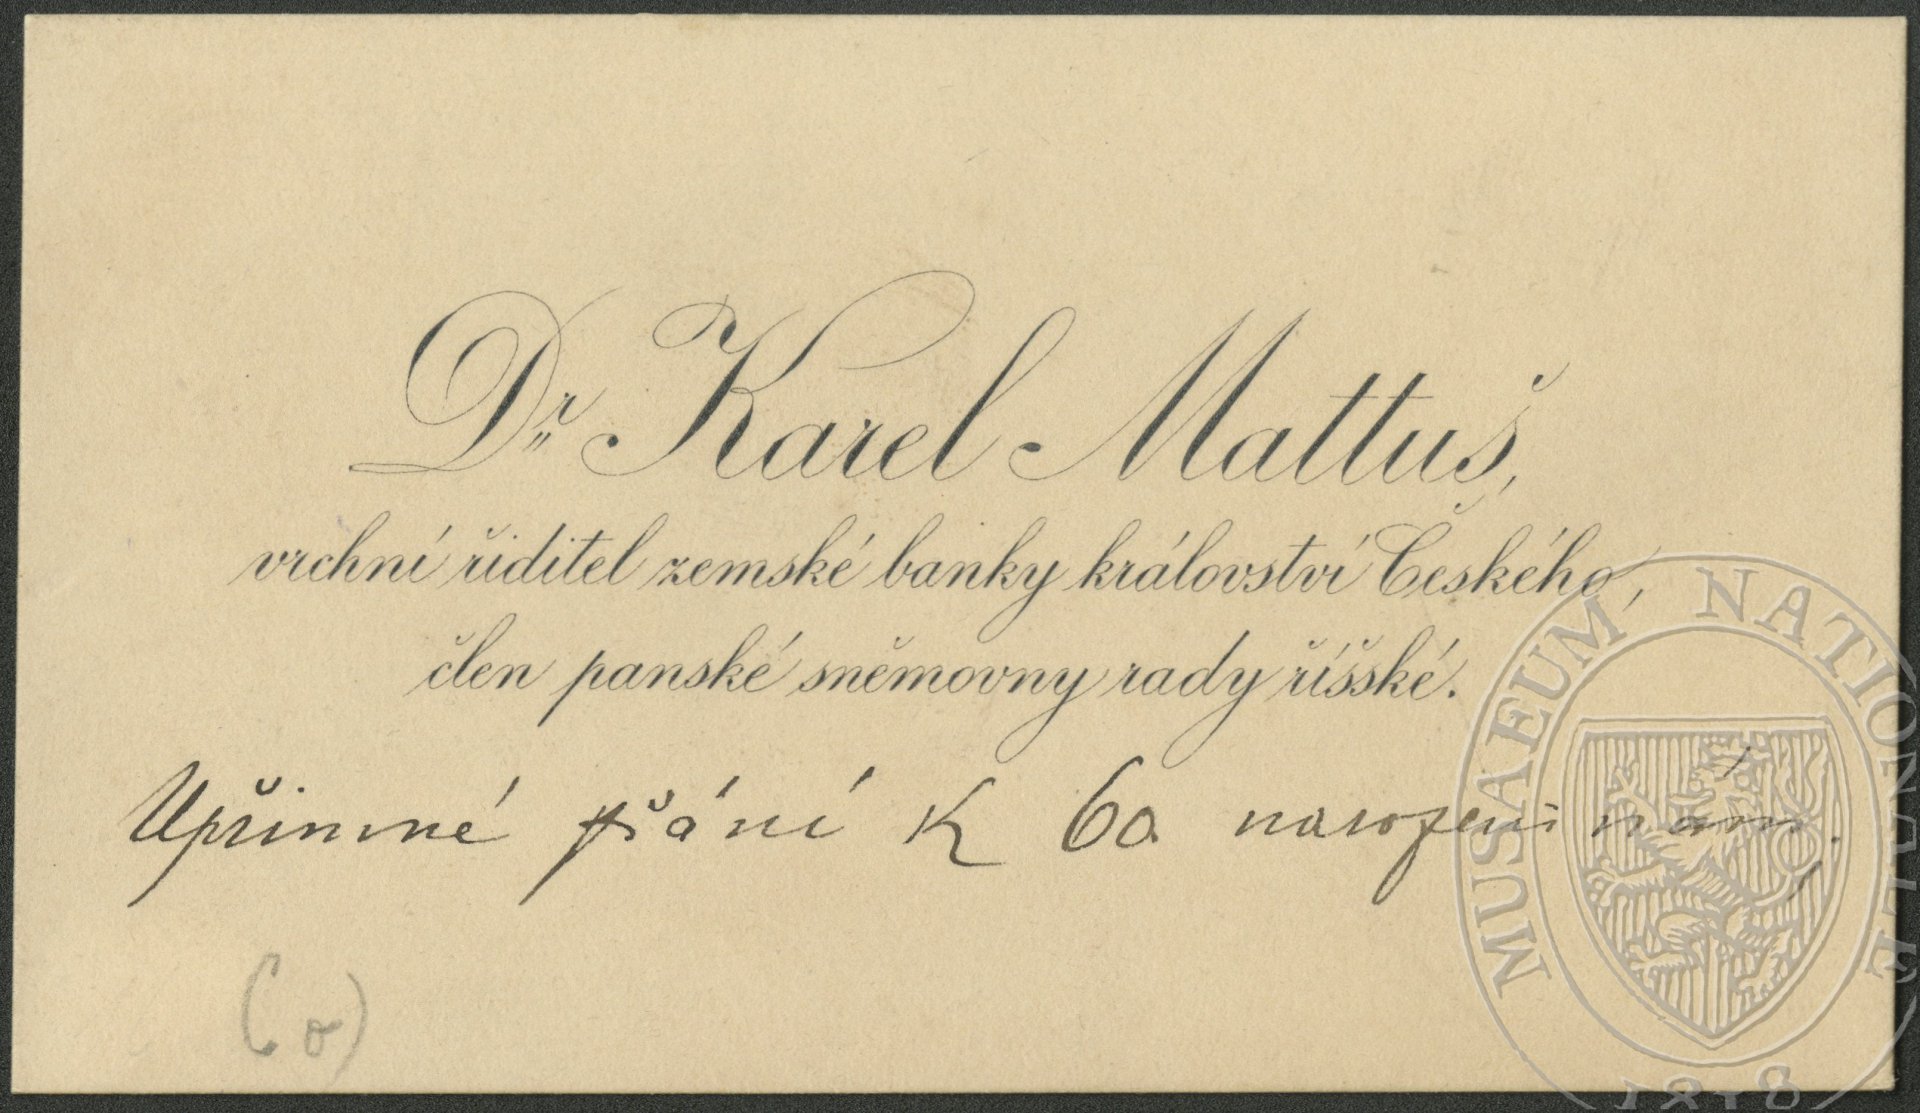 Dr Karel Mattuš,
vrchní řiditel zemské banky království Českého,
člen panské sněmovny rady říšské.
Upřímné přání k 60 narozeninám.
60)
MUSAEUM NATIONALE
1818